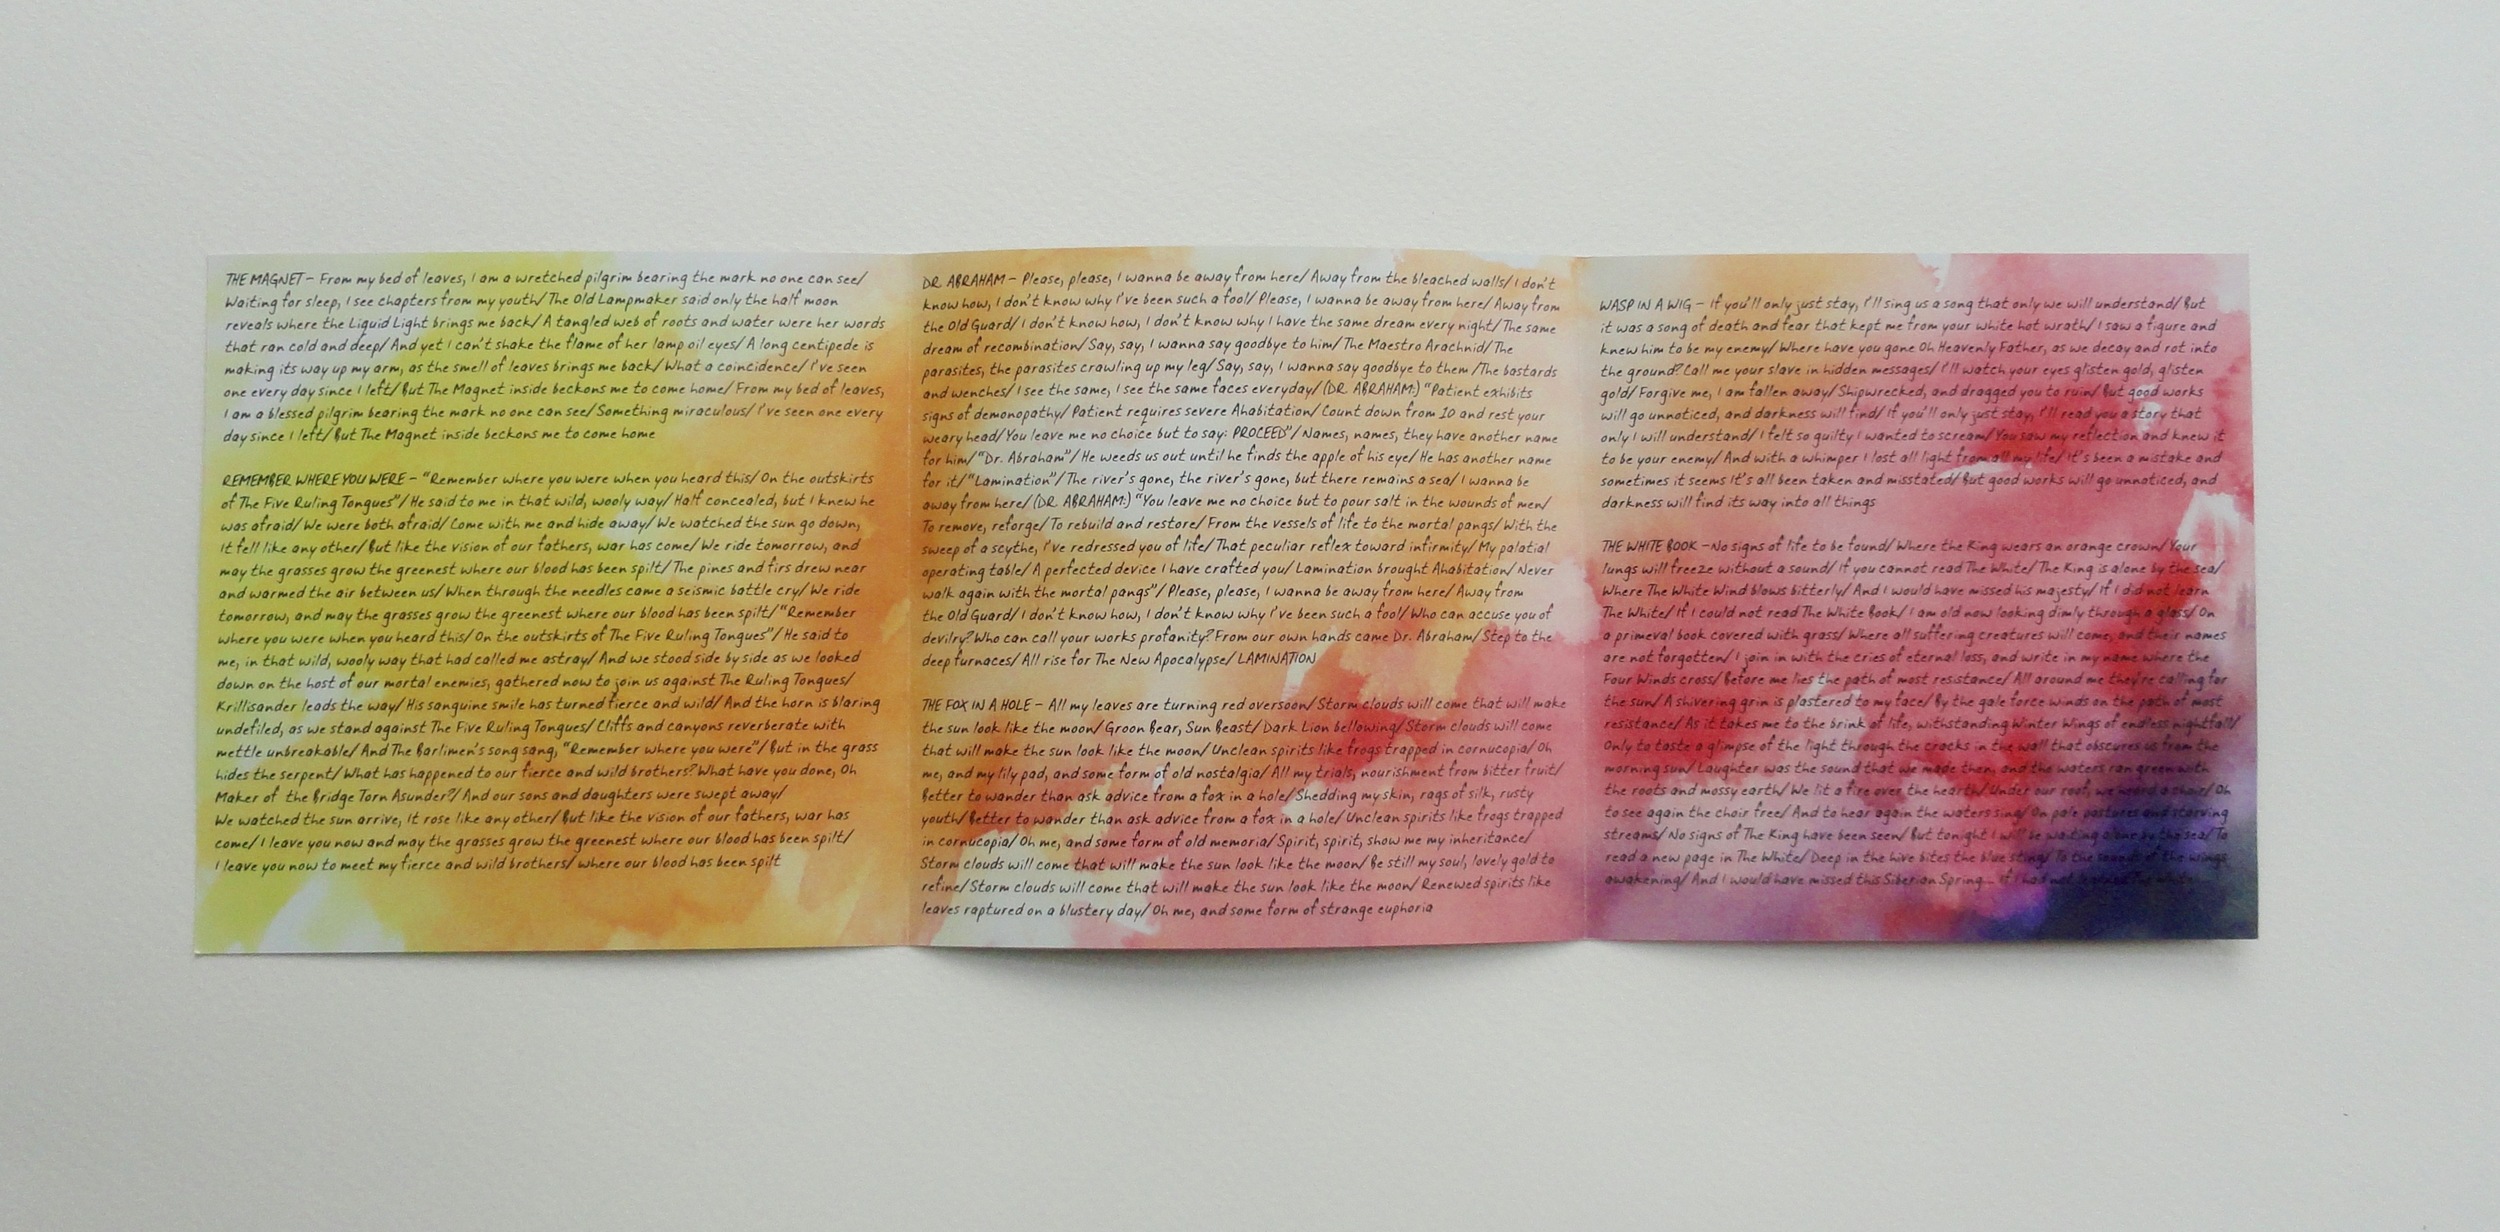 THE MAGNET – From my bed of leaves, I am a wretched pilgrim bearing the mark no one can see/
Waiting for sleep, I see chapters from my youth/ The Old Lampmaker said only the half moon
reveals where the Liquid Light brings me back/ A tangled web of roots and water were her words
that ran cold and deep/ And yet I can't shake the flame of her lamp oil eyes/ A long centipede is
making its way up my arm, as the smell of leaves brings me back/ What a coincidence/ I've seen
one every day since I left/ But The Magnet inside beckons me to come home/ From my bed of leaves,
I am a blessed pilgrim bearing the mark no one can see/ Something miraculous/ I've seen one every
day since I left/ But The Magnet inside beckons me to come home
REMEMBER WHERE YOU WERE – "Remember where you were when you heard this/ On the outskirts
of The Five Ruling Tongues"/ He said to me in that wild, wooly way/ Half concealed, but I knew he
was afraid/ We were both afraid/ Come with me and hide away/ We watched the sun go down,
It fell like any other/ But like the vision of our fathers, war has come/ We ride tomorrow, and
may the grasses grow the greenest where our blood has been spilt/ The pines and firs drew near
and warmed the air between us/ When through the needles came a seismic battle cry/ We ride
tomorrow, and may the grasses grow the greenest where our blood has been spilt/ "Remember
where you were when you heard this/ On the outskirts of The Five Ruling Tongues"/ He said to
me, in that wild, wooly way that had called me astray/ And we stood side by side as we looked
down on the host of our mortal enemies, gathered now to join us against The Ruling Tongues/
Krillisander leads the way/ His sanguine smile has turned fierce and wild/ And the horn is blaring
undefiled, as we stand against The Five Ruling Tongues/ Cliffs and canyons reverberate with
mettle unbreakable/ And The Barlimen's song sang, "Remember where you were"/ But in the grass
hides the serpent/ What has happened to our fierce and wild brothers? What have you done, Oh
Maker of the Bridge Torn Asunder?/ And our sons and daughters were swept away/
We watched the sun arrive, It rose like any other/ But like the vision of our fathers, war has
come/ I leave you now and may the grasses grow the greenest where our blood has been spilt/
I leave you now to meet my fierce and wild brothers/ where our blood has been spilt
DR. ABRAHAM – Please, please, I wanna be away from here/ Away from the bleached walls/ I don't
know how, I don't know why I've been such a fool/ Please, I wanna be away from here/ Away from
the Old Guard/ I don't know how, I don't know why I have the same dream every night/ The same
dream of recombination/ Say, say, I wanna say goodbye to him/ The Maestro Arachnid/ The
parasites, the parasites crawling up my leg/ Say, say, I wanna say goodbye to them /The bastards
and wenches/ I see the same, I see the same faces everyday/ (DR. ABRAHAM:) "Patient exhibits
signs of demonopathy/ Patient requires severe Ahabitation/ Count down from 10 and rest your
weary head/ You leave me no choice but to say: PROCEED"/ Names, names, they have another name
for him/ "Dr. Abraham"/ He weeds us out until he finds the apple of his eye/ He has another name
for it/ "Lamination"/ The river's gone, the river's gone, but there remains a sea/ I wanna be
away from here/ (DR. ABRAHAM:) "You leave me no choice but to pour salt in the wounds of men/
To remove, reforge/ To rebuild and restore/ From the vessels of life to the mortal pangs/ With the
sweep of a scythe, I've redressed you of life/ That peculiar reflex toward infirmity/ My palatial
operating table/ A perfected device I have crafted you/ Lamination brought Ahabitation/ Never
walk again with the mortal pangs"/ Please, please, I wanna be away from here/ Away from
the Old Guard/ I don't know how, I don't know why I've been such a fool/ Who can accuse you of
devilry? Who can call your works profanity? From our own hands came Dr. Abraham/ Step to the
deep furnaces/ All rise for The New Apocalypse/ LAMINATION
THE FOX IN A HOLE – All my leaves are turning red oversoon/ Storm clouds will come that will make
the sun look like the moon/ Groon Bear, Sun Beast/ Dark Lion bellowing/ Storm clouds will come
that will make the sun look like the moon/ Unclean spirits like frogs trapped in cornucopia/ Oh
me, and my lily pad, and some form of old nostalgia/ All my trials, nourishment from bitter fruit/
Better to wander than ask advice from a fox in a hole/ Shedding my skin, rags of silk, rusty
youth/ Better to wander than ask advice from a fox in a hole/ Unclean spirits like frogs trapped
in cornucopia/ Oh me, and some form of old memoria/ Spirit, spirit, show me my inheritance/
Storm clouds will come that will make the sun look like the moon/ Be still my soul, lovely gold to
refine/ Storm clouds will come that will make the sun look like the moon/ Renewed spirits like
leaves raptured on a blustery day/ Oh me, and some form of strange euphoria
WASP IN A WIG – If you'll only just stay, I'll sing us a song that only we will understand/ But
it was a song of death and fear that kept me from your white hot wrath/ I saw a figure and
knew him to be my enemy/ Where have you gone Oh Heavenly Father, as we decay and rot into
the ground? Call me your slave in hidden messages/ I'll watch your eyes glisten gold, glisten
gold/ Forgive me, I am fallen away/ Shipwrecked, and dragged you to ruin/ But good works
will go unnoticed, and darkness will find/ If you'll only just stay, I'll read you a story that
only I will understand/ I felt so guilty I wanted to scream/ You saw my reflection and knew it
to be your enemy/ And with a whimper I lost all light from all my life/ It's been a mistake and
sometimes it seems It's all been taken and misstated/ But good works will go unnoticed, and
darkness will find its way into all things
THE WHITE BOOK –No signs of life to be found/ Where the King wears an orange crown/ Your
lungs will freeze without a sound/ If you cannot read The White/ The King is alone by the sea/
Where The White Wind blows bitterly/ And I would have missed his majesty/ If I did not learn
The White/ If I could not read The White Book/ I am old now looking dimly through a glass/ On
a primeval book covered with grass/ Where all suffering creatures will come, and their names
are not forgotten/ I join in with the cries of eternal loss, and write in my name where the
Four Winds cross/ Before me lies the path of most resistance/ All around me they're calling for
the sun/ A shivering grin is plastered to my face/ By the gale force winds on the path of most
resistance/ As it takes me to the brink of life, withstanding Winter Wings of endless nightfall/
Only to taste a glimpse of the light through the cracks in the wall that obscures us from the
morning sun/ Laughter was the sound that we made then, and the waters ran green with
the roots and mossy earth/ We lit a fire over the hearth/ Under our roof, we heard a choir/ Oh
to see again the choir free/ And to hear again the waters sing/ On pale pastures and starving
streams/ No signs of The King have been seen/ But tonight I will be waiting alone by the sea/ To
read a new page in The White/ Deep in the hive bites the blue sting/ To the sounds of the wings
awakening/ And I would have missed this Siberian Spring... If I had not learned The White